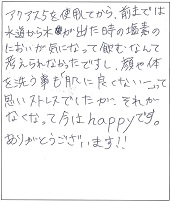 アクアス5を使用してから、前までは
水道から水が出た時の塩素の
においが気になって飲むなんて
考えられなかったですし、顔や体
を洗う事も「肌に良くない…」って
思いストレスでしたが、それが
なくなって今はhappyです。
ありがとうございます!!